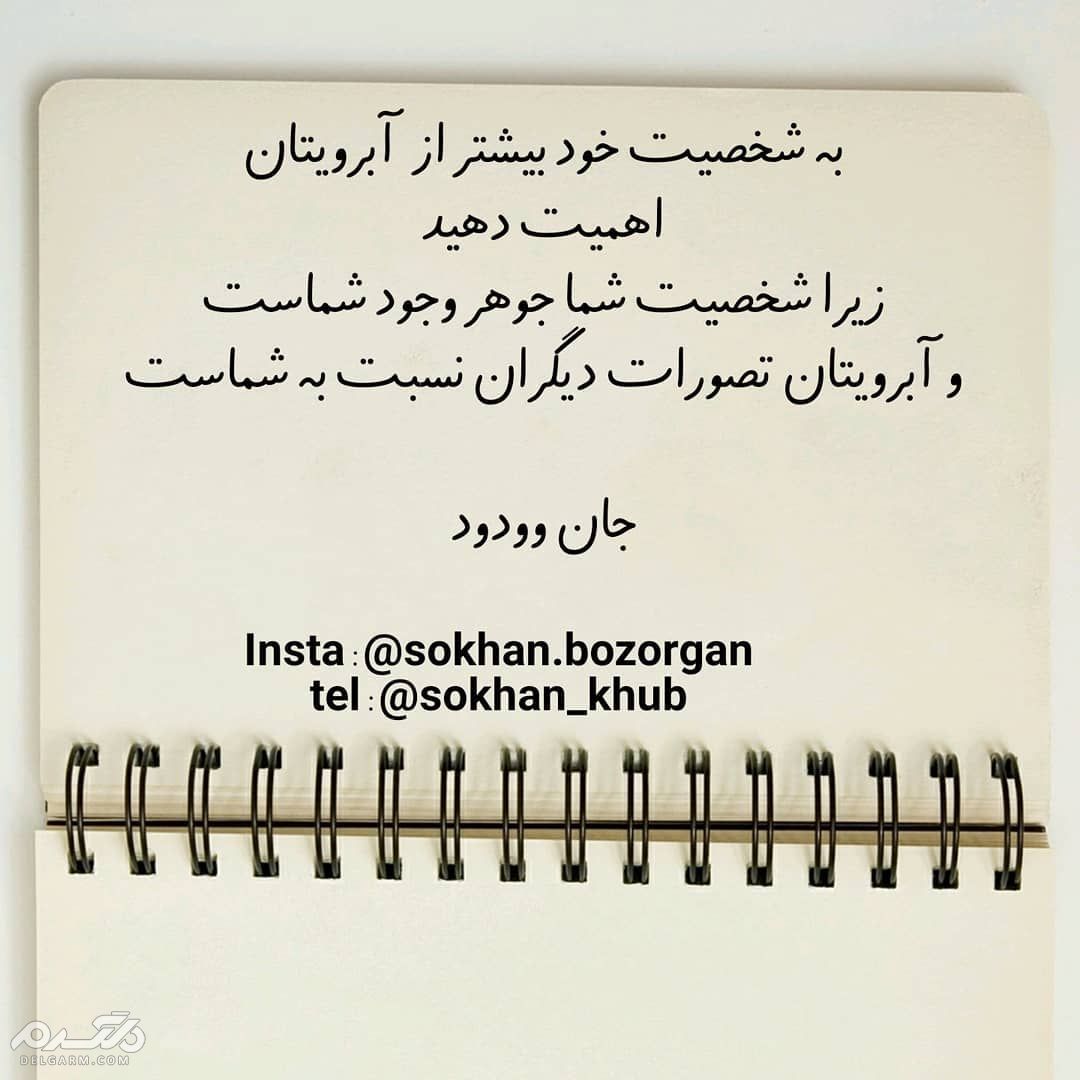 به شخصیت خود بیشتر از آبرویتان
اهمیت دهید
زیرا شخصیت شما جوهر وجود شماست
و آبرویتان تصورات دیگران نسبت به شماست
جان وودود
Insta : @sokhan.bozorgan
tel : @sokhan_khub
دلگرم
DELGARM.COM